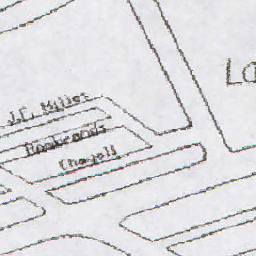 J.F. Millet
Rembrands
Chagall
La